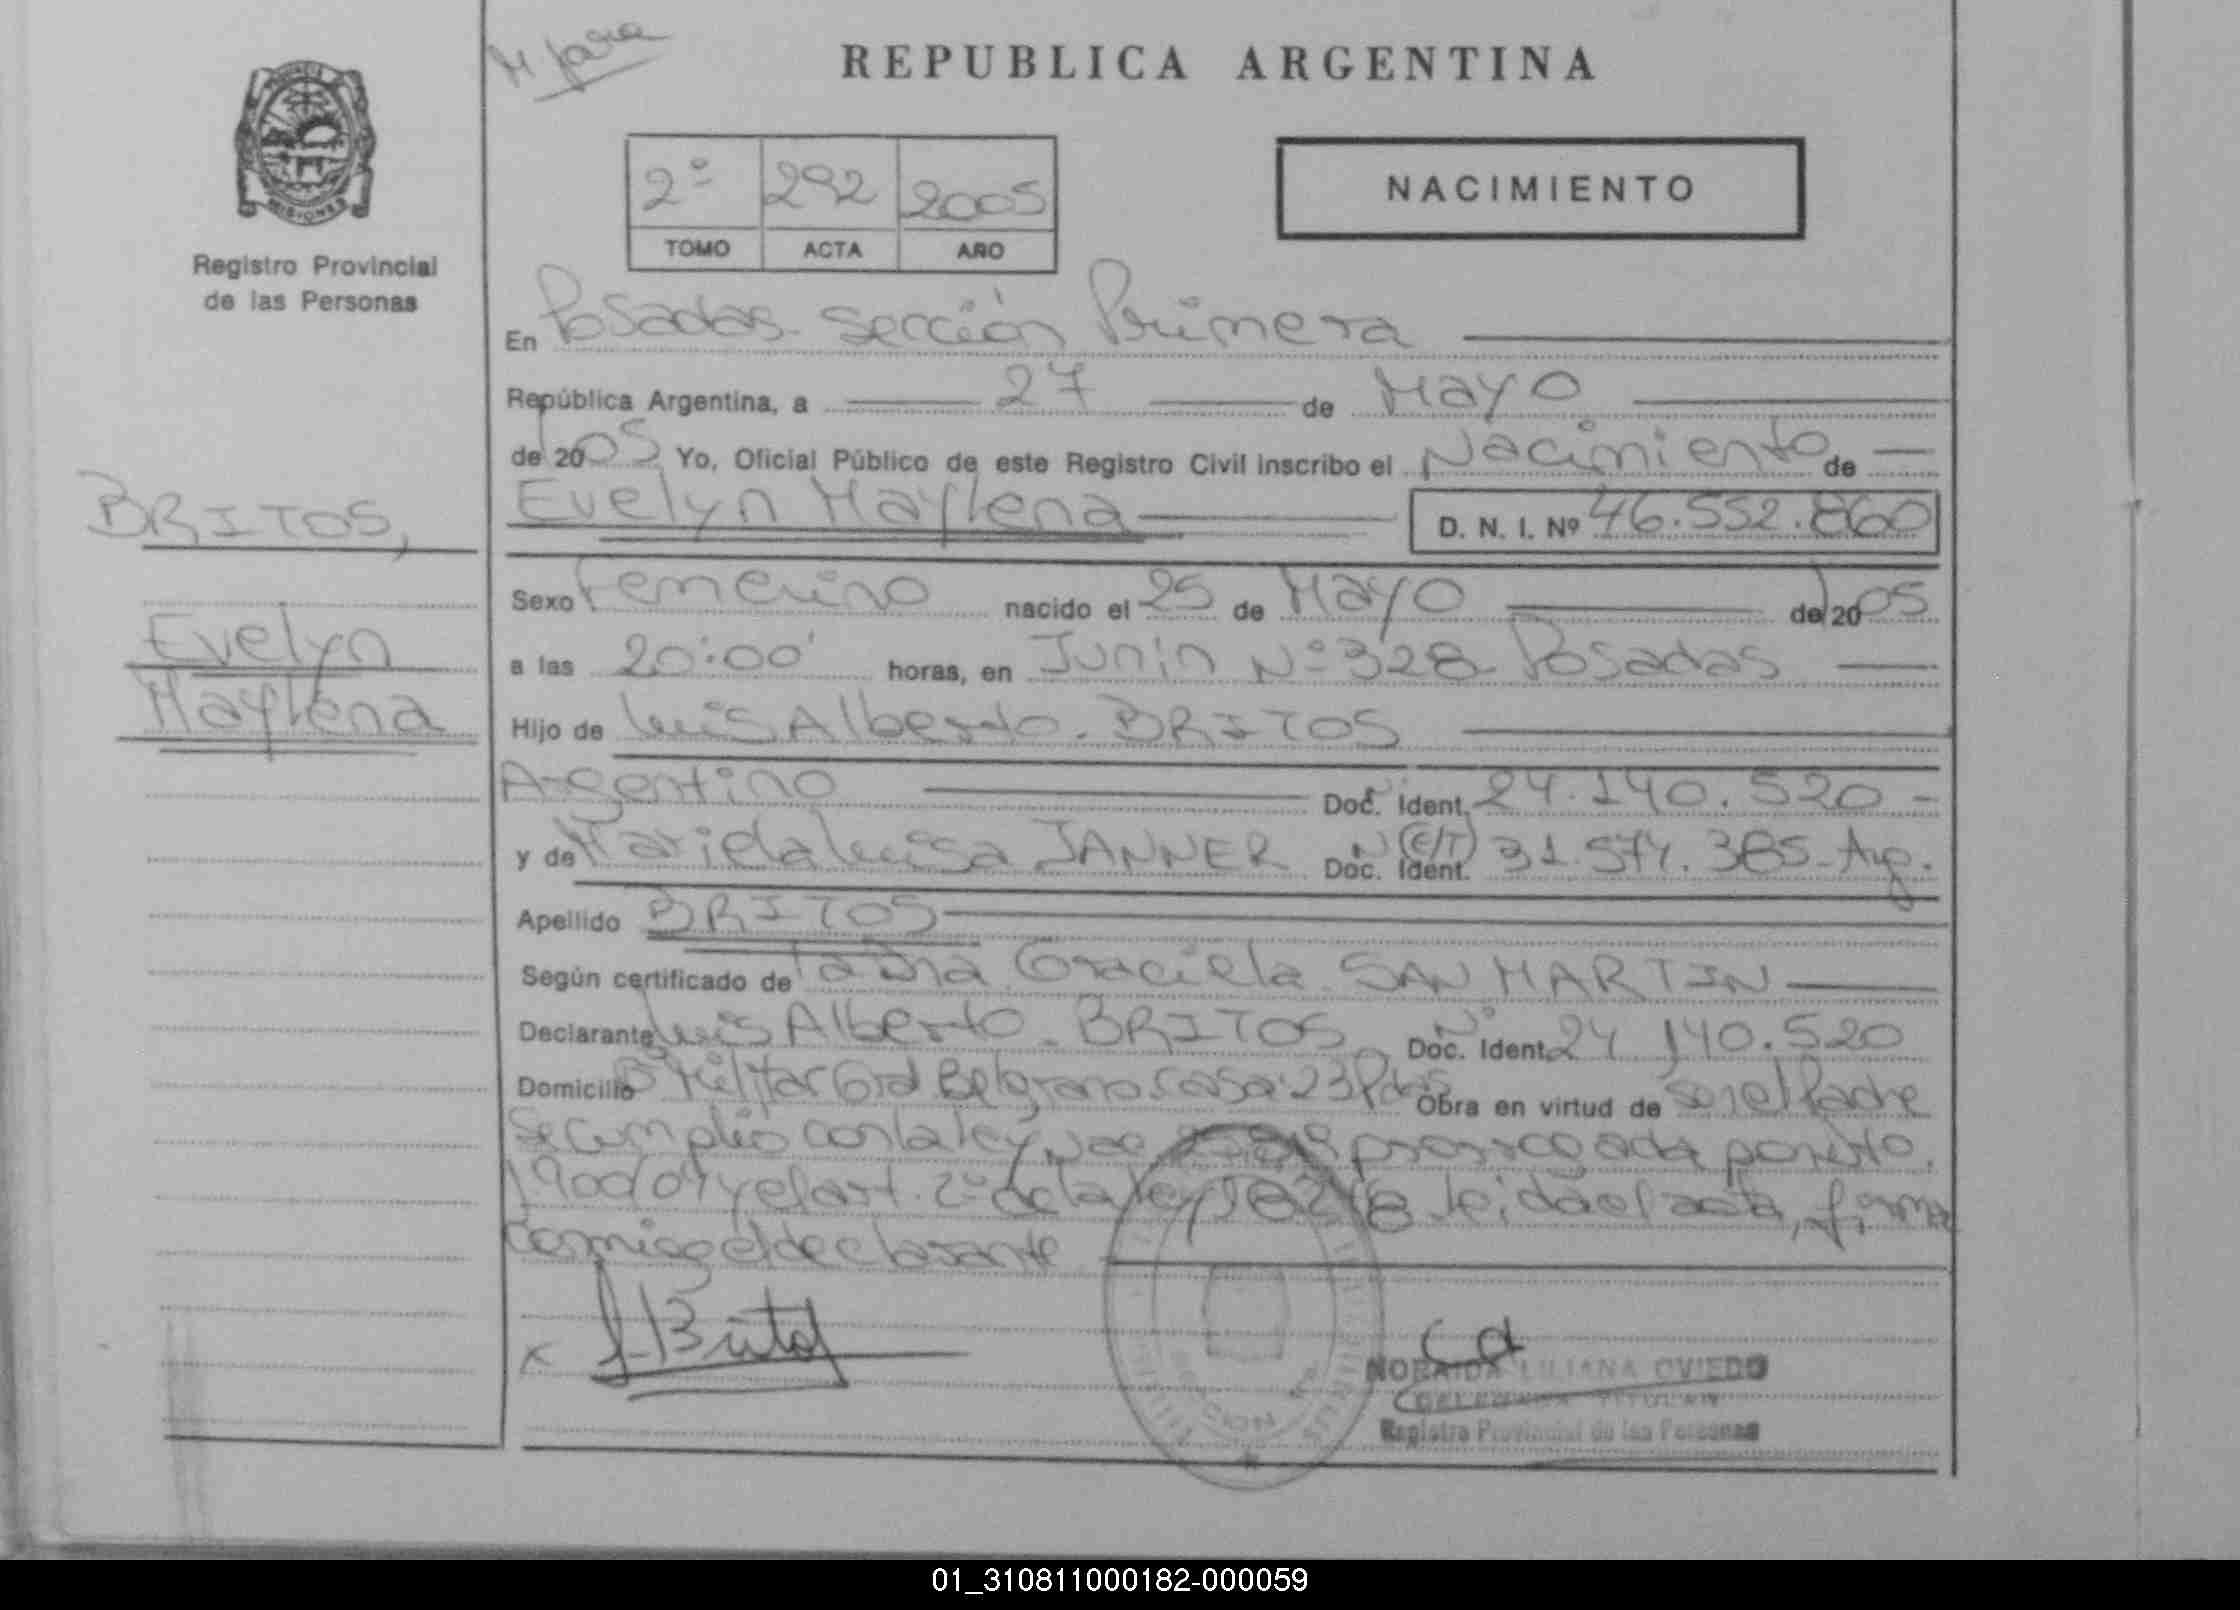 M Jara
REPUBLICA ARGENTINA
2º 292 2005
TOMO ACTA AÑO
NACIMIENTO
MISIONES
Registro Provincial
de las Personas
BRITOS,
Evelyn
Maylena
En Posadas. Sección Primera
República Argentina, a 27 de Mayo
de 2005 Yo, Oficial Público de este Registro Civil inscribo el Nacimiento de
Evelyn Maylena D. N. I. Nº 46.552.860
Sexo Femenino nacido el 25 de Mayo de 2005
a las 20:00' horas, en Junín Nº 328 Posadas
Hijo de Luis Alberto. BRITOS
Argentino Doc. Ident. 24.140.520 -
y de Mariela Luisa JANNER Nº (C/T) Doc. Ident. 31.574.385 - Arg.
Apellido BRITOS
Según certificado de la Dra. Graciela. SAN MARTIN
Declarante Luis Alberto. BRITOS Nº Doc. Ident. 24 140.520
Domicilio Bº Militar Gral Belgrano casa: 23 Pdas Obra en virtud de ser el Padre
Se cumplió con la ley Nac prorrogada por Dto.
1900/04 y el art. 2º de la ley 18248 leida el acta, firma
conmigo el declarante
x L. Britos
NORAIDA LILIANA OVIEDO
DELEGADA TITULAR
Registro Provincial de las Personas
01_310811000182-000059